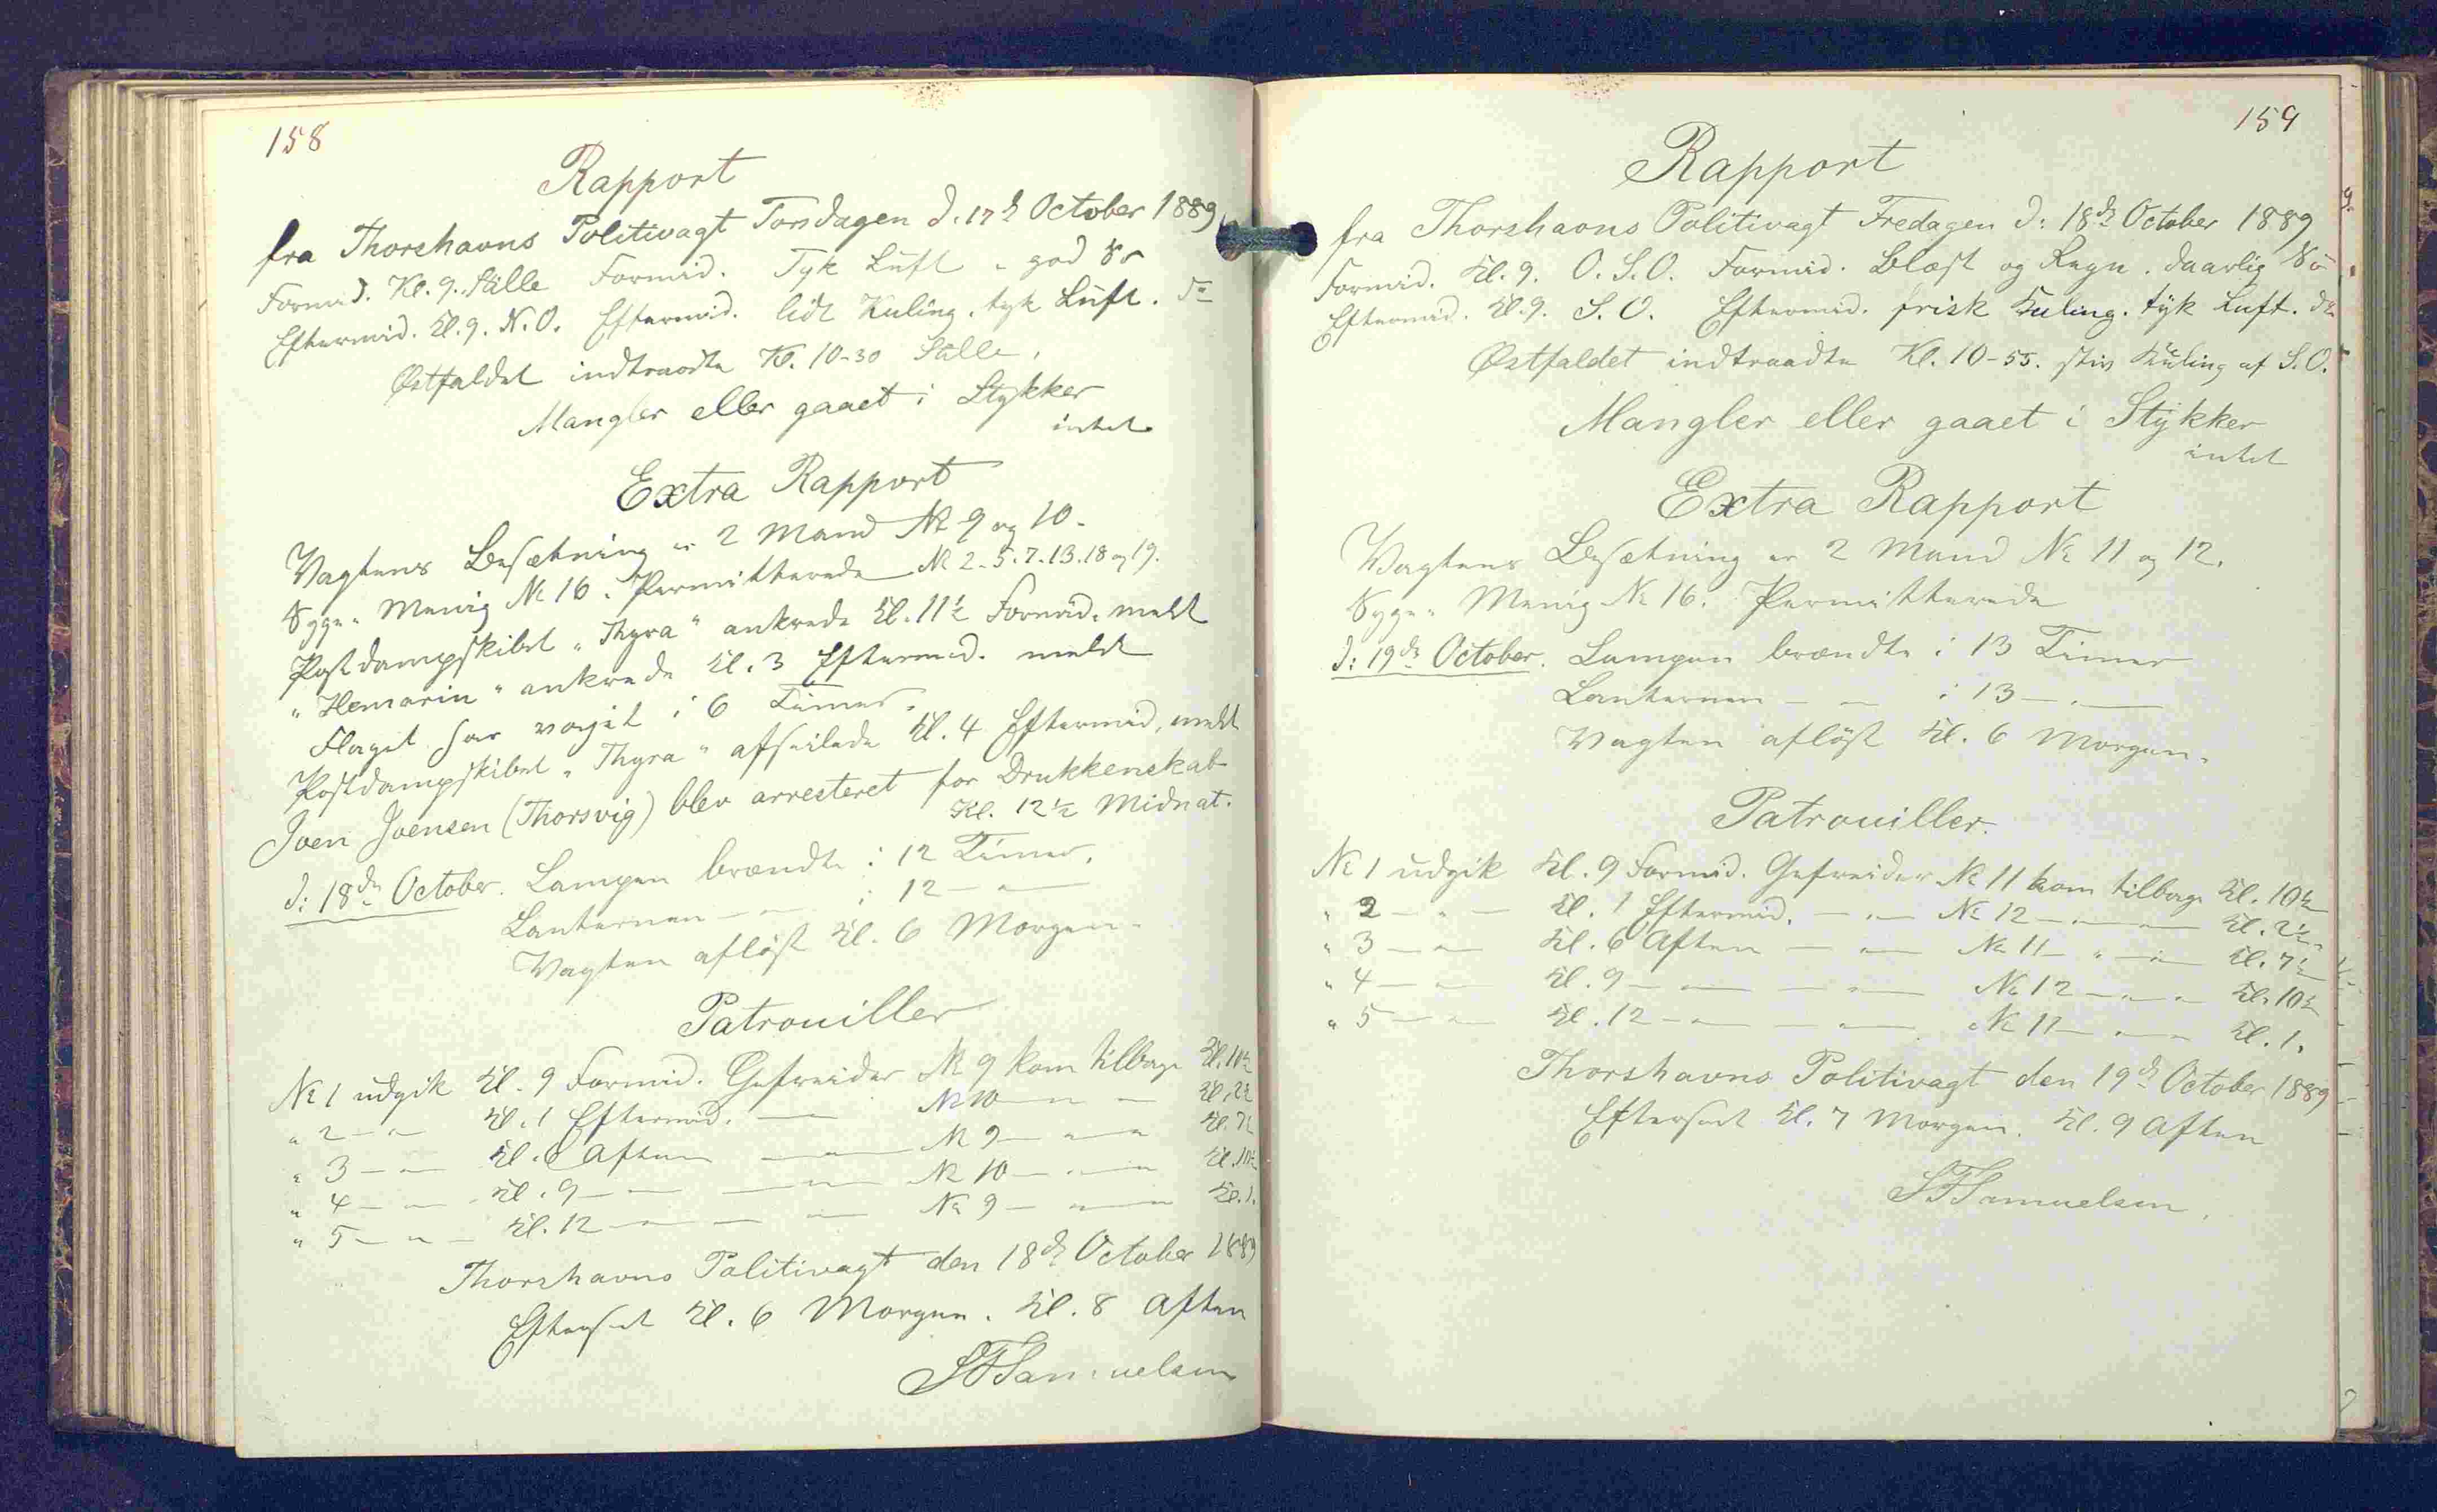 158
Rapport
fra Thorshavns Politivagt Torsdagen d. 17de October 1889
Formid. Kl. 9. Stille Formid. Tyk Luft " god Sö
Eftermid. Kl. 9. N.O. Eftermid. lidt Kuling. tyk Luft. do
Østfaldet indtraadte Kl. 10-30 Stille.
Mangler eller gaaet i Stykker
intet
Extra Rapport
Vagtens Besætning er 2 Mand No 9 og 10.
Syge " Menig No 16. Permitterede No 2. 5. 7. 13. 18 og 19.
Postdampskibet "Thyra" ankrede Kl. 11½ Formid. meldt
" ankrede Kl. 3 Eftermid. meldt
Flaget har vajet i 6 Timer.
Postdampskibet "Thyra" afseilede Kl. 4 Eftermid. meldt
Joen Joensen (Thorsvig) blev arresteret for Drukkenskab
Kl. 12½ Midnat.
d: 18de October. Lampen brændte i 12 Timer.
Lanternen — " — i 12 — " —
Vagten afløst Kl. 6 Morgen.
Patrouiller
No 1 udgik Kl. 9 Formid. Gefreider No 9 kom tilbage Kl. 10½
" 2 — " — Kl. 1 Eftermid. — " — No 10 — " — Kl. 2½
" 3 — " — Kl. 6 Aften — " — No 9 — " — " Kl. 7½
" 4 — " — Kl. 9 — " — — " — No 10 — " — " Kl. 10½
" 5 — " — Kl. 12 — " — — " — No 9 — " — " Kl. 1.
Thorshavns Politivagt den 18de October 1889
Efterseet Kl. 6 Morgen. Kl. 8 Aften
SFSamuelsen
159
Rapport
fra Thorshavns Politivagt Fredagen d: 18de October 1889
Formid. Kl. 9. O.S.O. Formid. Blæst og Regn. daarlig Sö
Eftermid. Kl. 9. S.O. Eftermid. frisk Kuling. tyk Luft. do
Østfaldet indtraadte Kl. 10-55. stiv Kuling af S.O.
Mangler eller gaaet i Stykker
intet
Extra Rapport
Vagtens Besætning er 2 Mand No 11 og 12.
Syge " Menig No 16. Permitterede
d: 19de October. Lampen brændte i 13 Timer
Lanternen — " — i 13 — " —
Vagten afløst Kl. 6 Morgen.
Patrouiller.
No 1 udgik Kl. 9 Formid. Gefreider No 11 kom tilbage Kl. 10½
" 2 — " — Kl. 1 Eftermid. — " — No 12 — " — " — Kl. 2½
" 3 — " — Kl. 6 Aften — " — No 11 — " — " — Kl. 7½
" 4 — " — Kl. 9 — " — — " — No 12 — " — " Kl. 10½
" 5 — " — Kl. 12 — " — — " — No 11 — " — " Kl. 1.
Thorshavns Politivagt den 19de October 1889
Efterseet Kl. 7 Morgen. Kl. 9 Aften
SFSamuelsen.